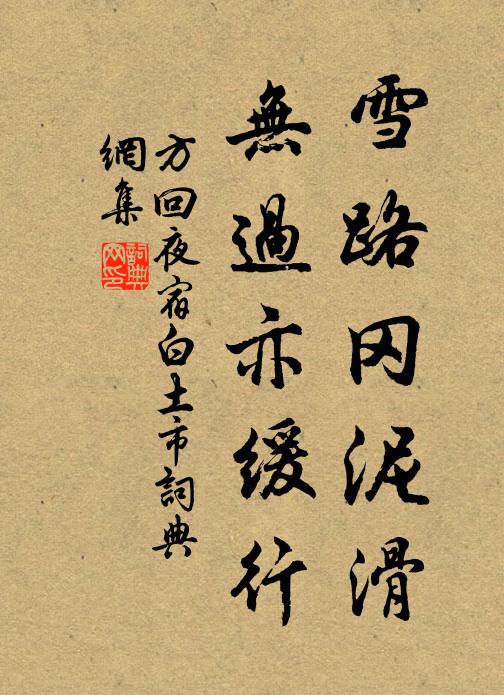 雪路冈泥滑
無過亦緩行
方回夜宿白土市詞典
網集
詞典
网印